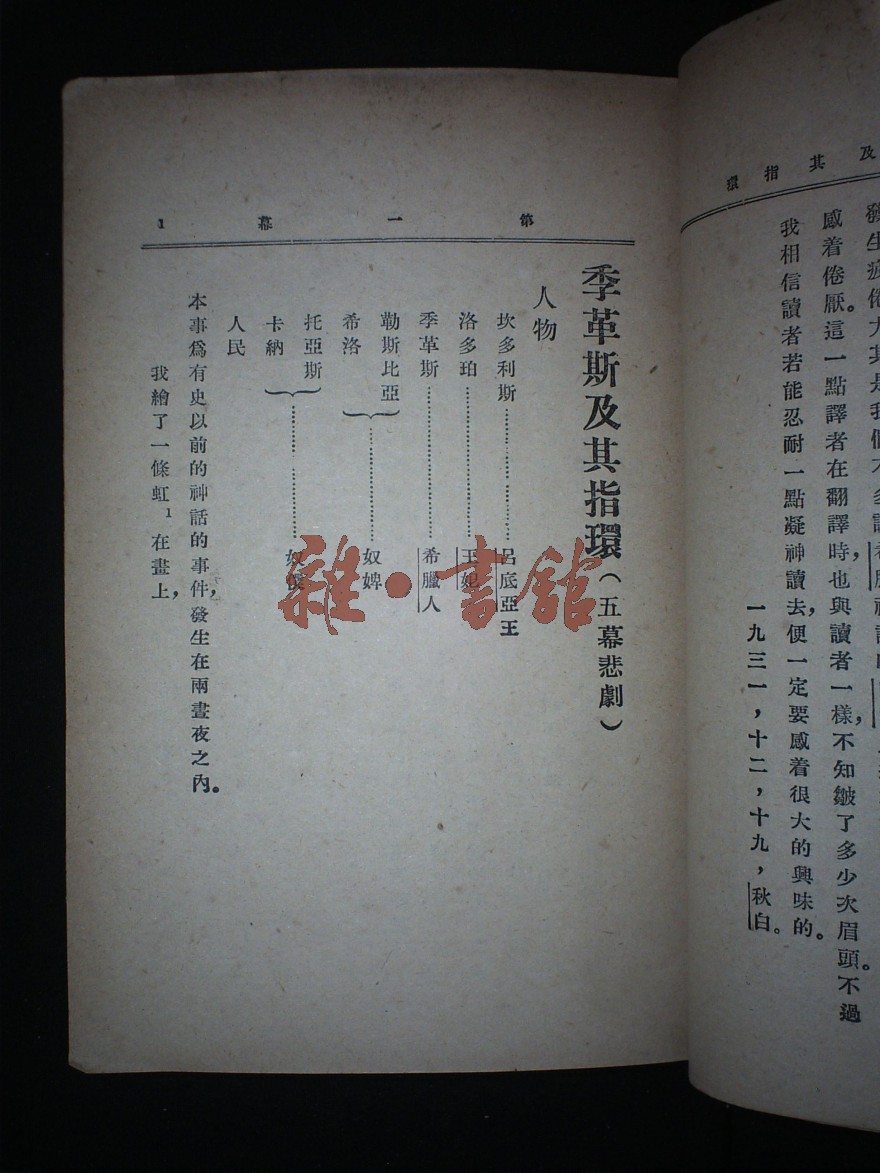 及其指環
感着倦厭。這一點譯者在翻譯時,也與讀者一樣,不知皺了多少次眉頭。不過
我相信讀者若能忍耐一點凝神讀去,便一定要感着很大的興味的。
一九三一,十二,十九,秋白。
第一幕 1
季革斯及其指環(五幕悲劇)
人物
坎多利斯……………呂底亞王
洛多珀……………王妃
季革斯……………希臘人
勒斯比亞
希洛
……………奴婢
托亞斯
卡納
……………奴僕
人民
本事爲有史以前的神話的事件,發生在兩晝夜之內。
我繪了一條虹1在畫上,
雜·書館